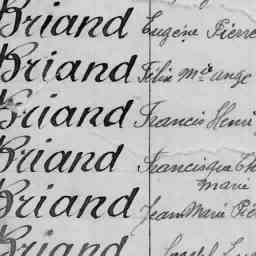 Briand Eugène Pierre
Briand Félix Mie ange
Briand Francis Henri
Briand Francisque
marie
Briand Jean Marie
Briand